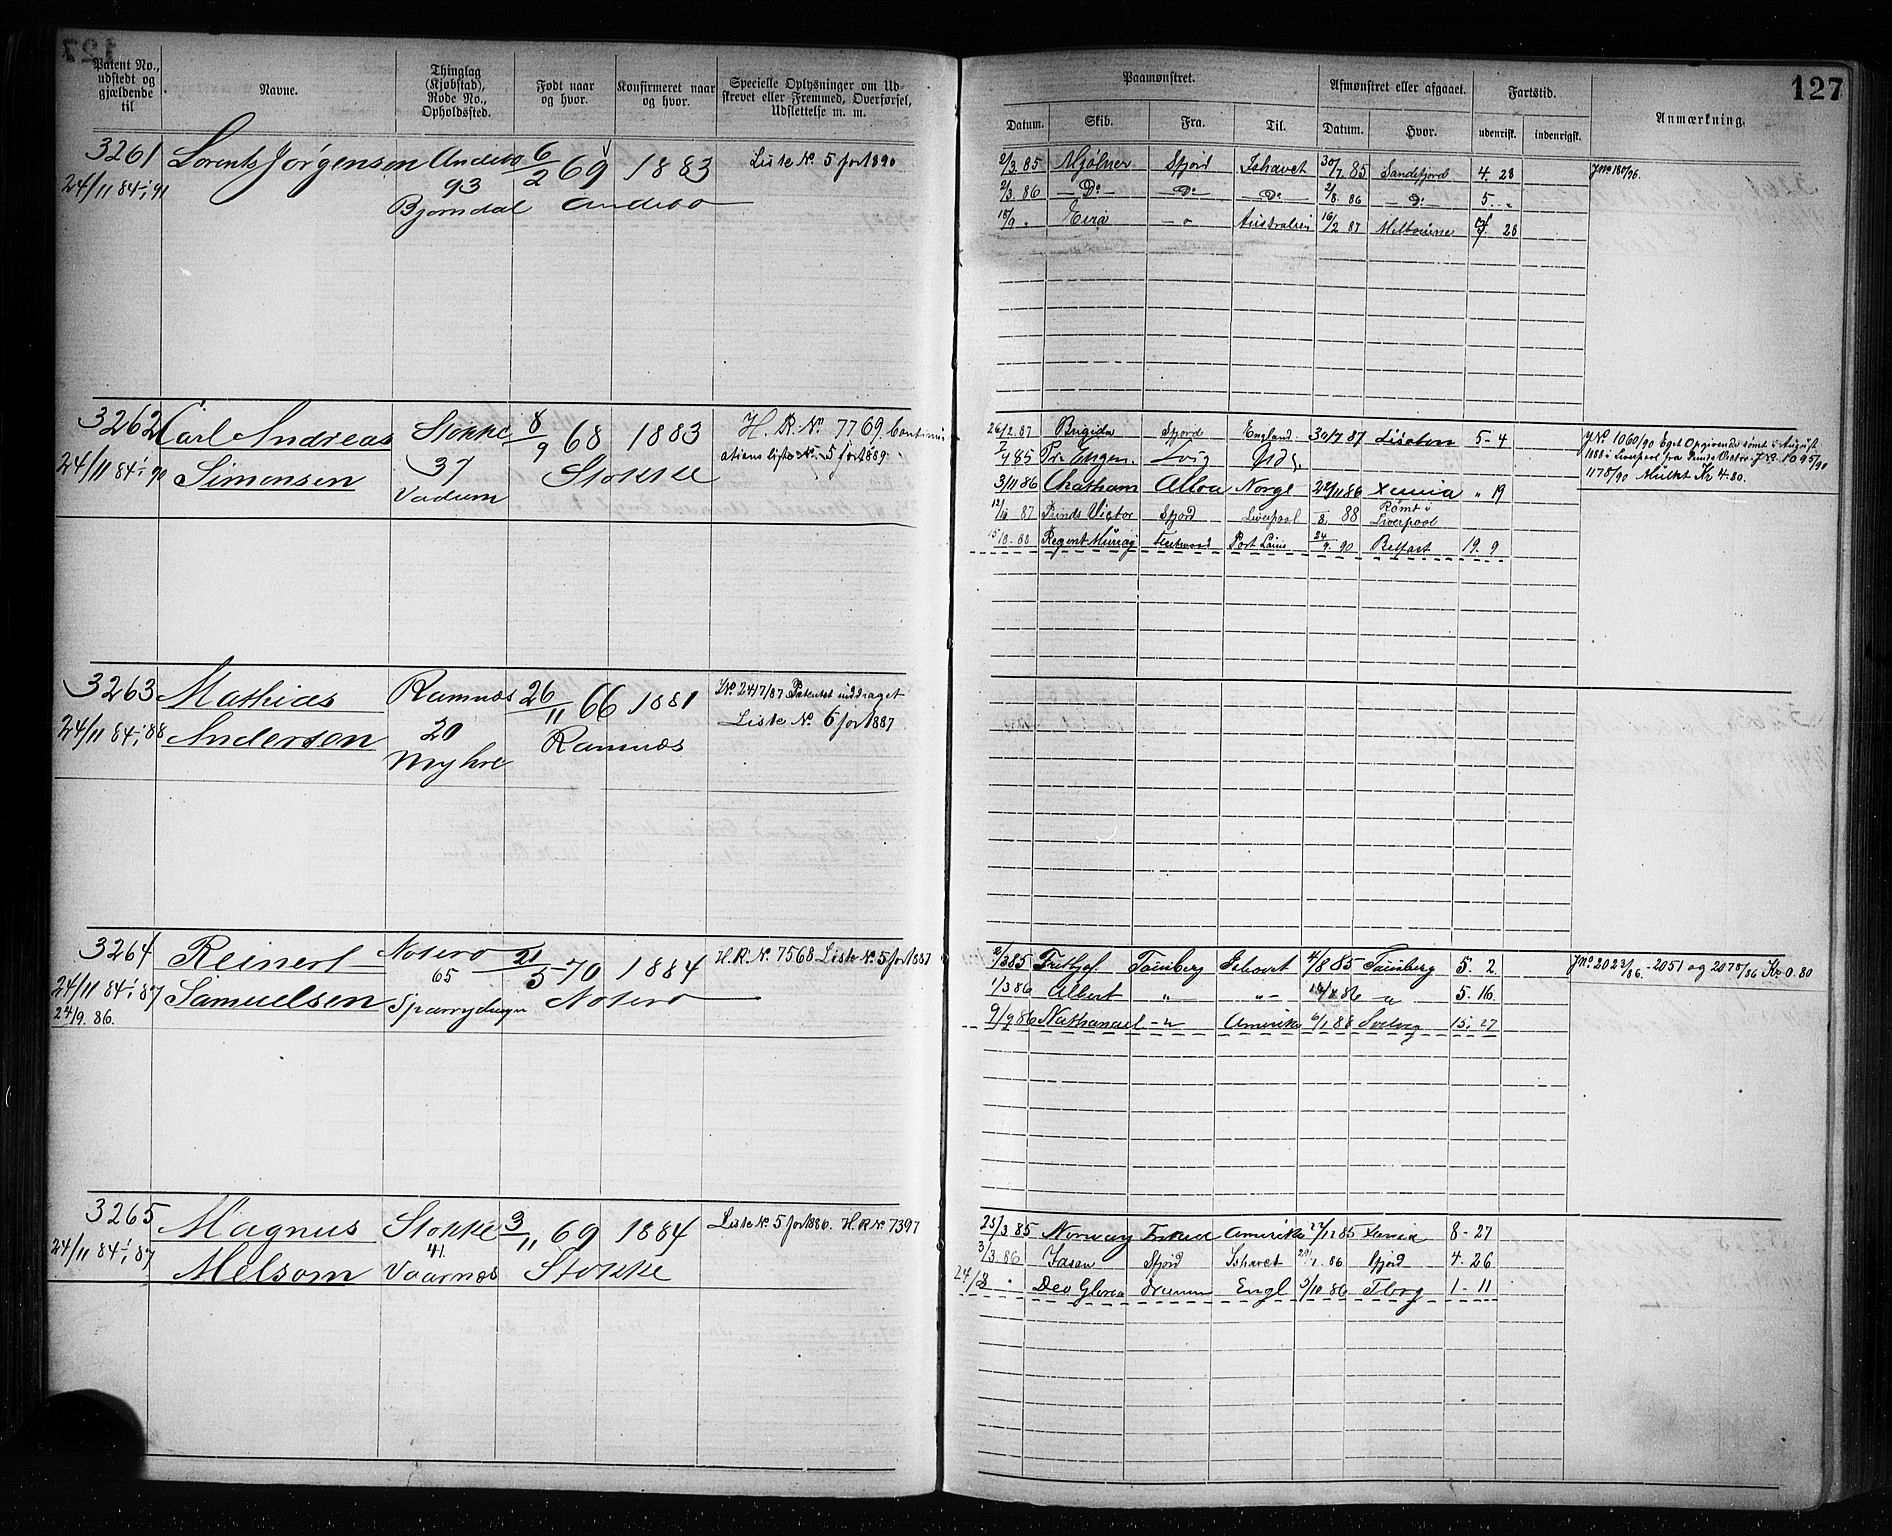 127
Patent No., udstedt og gjældende til
Navne.
Thinglag (Kjøbstad), Rode No., Opholdssted.
Født naar og hvor.
Konfirmeret naar og hvor.
Specielle Oplysninger om Udskrevet eller Fremmed, Overførsel, Udslettelse m. m.
Paamønstret.
Afmønstret eller afgaaet.
Fartstid.
Anmærkning.
Datum. Skib. Fra. Til. Datum. Hvor. udenrigsk. indenrigsk.
3261 Lorents Jørgensen Andebo 6/2 69 1883 Liste No. 5 for 1890
24/11 84 - 1/1 91 93 Andebo
Bjorndal
2/3. 85 Mjølner Sfjord Ishavet 30/7. 85 Sandefjord 4. 28 Jno 180/86.
2/3. 86 — Do — Do — Do 2/8. 86 — Do 5. "
18/9 " Eira — " Australien 16/2 87 Melbourne 28
3262 Carl Andreas Stokke 8/9 68 1883 H. R. No. 7769. Continu
24/11 84 - 1/1 90 Simonsen 37 Stokke ationsliste No. 5 for 1889.
Vadum
26/2. 87 Brigida Sfjord England 30/7 87 Lissabon 5 - 4 JNo. 1060/90 Eget Opgivende rømt i August
85 Pr. Eugen. 1888 i Liverpool fra Prinds Victor. JNo. 1095/90
3/11 86 Chatham Alloa Norge 22/11 86 Xania " 19 1178/90 Mulkt Kr 4.80.
12/10 87 Prinds Victor Sfjord Liverpool /8. 88 Rømt i Liverpool
15/8. 88 Regent Murray Fleetwood Port Lairie 24/9. 90 Belfast 19. 9
3263 Mathias Ramnæs 26/11 66 1881 JNo. 2417/87 Patentet inddraget
24/11 84 - 1/1 88 Andersen 20 Ramnæs Liste No. 6 for 1887
Myhre
3264 Reinert Notero 21/5 70 1884 H. R. No. 7568. Liste No. 5 for 1887
24/11 84 - 1/1 87 Samuelsen 65 Notero
24/9. 86.
2/3 85 Fridtjof Tønsberg Ishavet 4/8 85 Tønsberg 5. 2 Jno. 2023/86. - 2051 og 2075/86 Kr 0.80
1/3 86 Albert " " 86 " 5. 16.
9/9 86 Nathanael " Amerika 6/1 88 Svelvig 15. 27
3265 Magnus Stokke 3/11 69 1884 Liste No. 5 for 1886. H. R. No. 7397
24/11 84 - 1/1 87 Melsom 41. Stokke
Vaarnæs
25/3 85 Norway Amerika 27/11 85 Xania 8 - 27
3/3. 86 Jasen Sfjord Ishavet 29/7. 86 Sfjord 4. 26
24/8 " Deo Gloria Engl 5/10 86 Tbrg 1 - 11